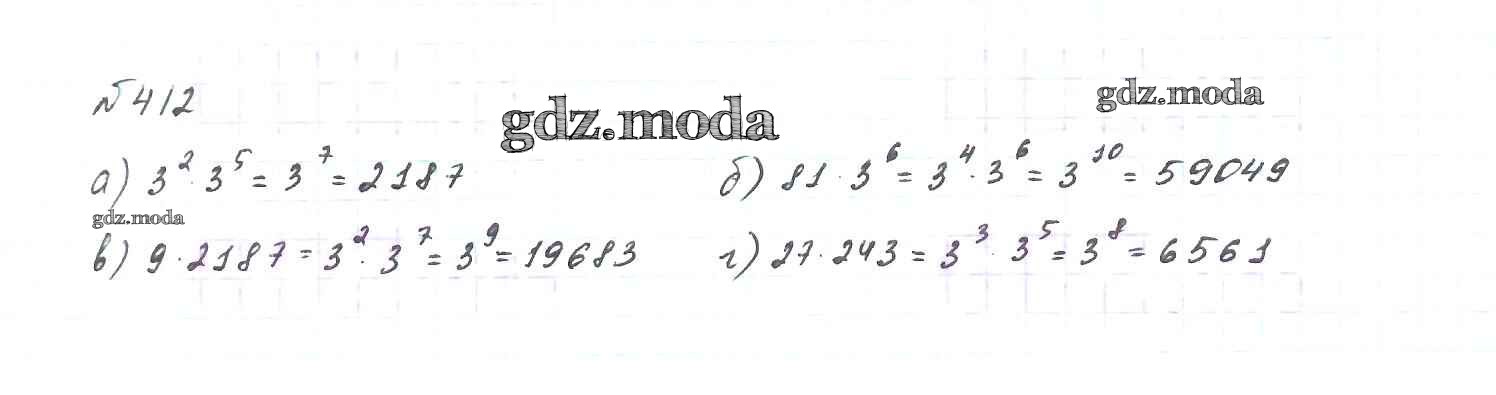 №412
gdz.moda
gdz.moda
а) 3² · 3⁵ = 3⁷ = 2187
б) 81 · 3⁶ = 3⁴ · 3⁶ = 3¹⁰ = 59049
gdz.moda
в) 9 · 2187 = 3² · 3⁷ = 3⁹ = 19683
г) 27 · 243 = 3³ · 3⁵ = 3⁸ = 6561